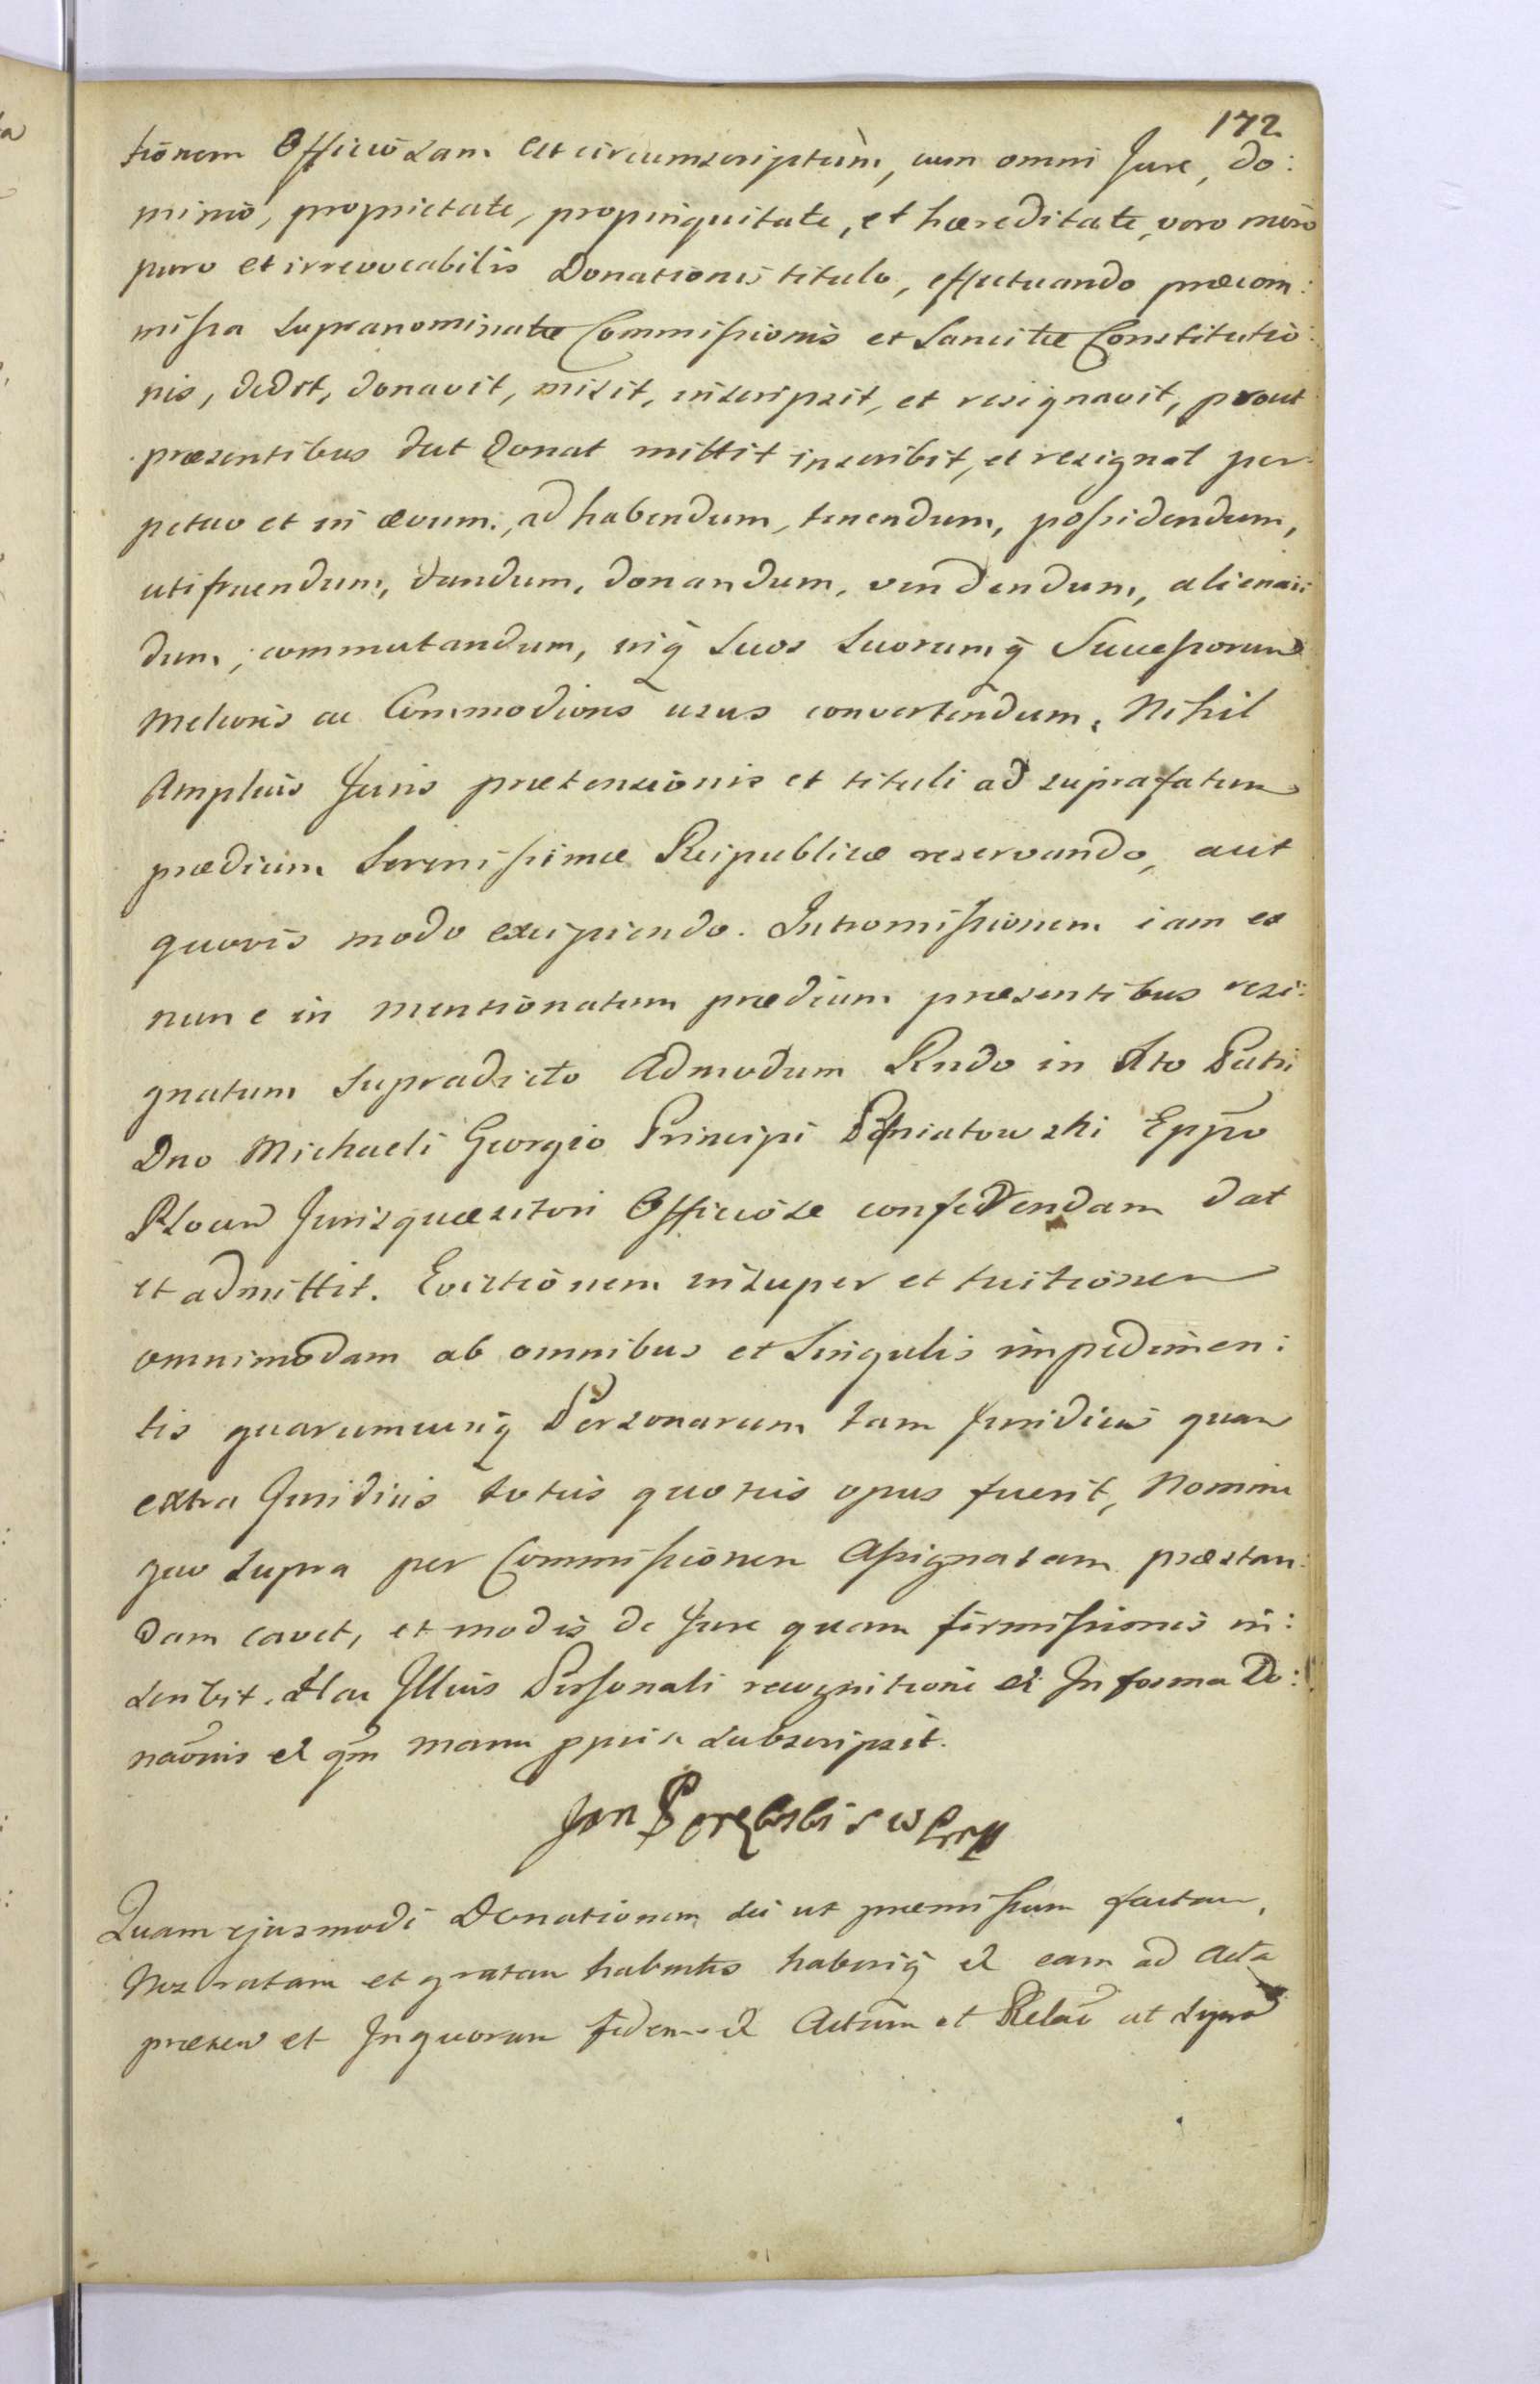 172
tionem Officiosam est circumscriptum, cum omni Jure, do:
minio, proprietate, propinquitate, et hæreditate, vero mero
puro et irrevocabilis Donationis titulo, effectuando præcom:
missa supranominatæ Commissionis et sancitæ Constitutio:
nis, dedit, donavit, misit, inscripsit, et resignavit, prout
præsentibus dat donat mittit inscribit, et resignat per:
petuo et in ævum, ad habendum, tenendum, possidendum,
utifruendum, dandum, donandum, vendendum, alienan:
dum, commutandum, inq suos suorumq Successorum
Melioris ac Commodioris usus convertendum, Nihil
Amplius Juris prætensionis et tituli ad suprafatum
prædium Serenissimæ Reipublicæ reservando, aut
quovis modo excipiendo. Intromissionem iam ex
nunc in mentionatum prædium præsentibus resi:
gnatum supradicto Admodum Rndo in Xto Patri
Dno Michaeli Georgio Principi Poniatowski Eppo
Plocen Jurisquæsitori Officiose conferendam dat
et admittit. Evictionem insuper et tuitionem
omnimodam ab omnibus et singulis impedimen:
tis quarumcunq Personarum tam Juridicis quam
extra Juridicis toties quoties opus fuerit, Nomine
quo supra per Commissionem Assignatam præstan:
dam cavet, et modis de Jure quam firmissimis in:
scribit. Hac Illius Personali recognitione et In forma Do:
naōnis et qm manu ppria subscripsit.
Jan Porębski
Quam ejusmodi Donationem sic ut præmissum factam,
Nos ratam et gratam habentes haberiq et eam ad Acta
præsen et In quorum fidem et Actum et Relaō ut supra